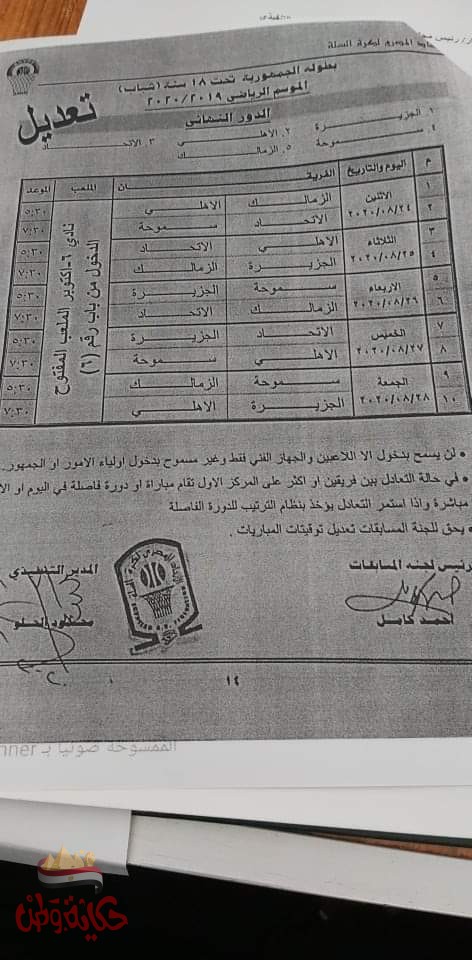 اد المصرى لكرة السلة
بطولة الجمهورية تحت ١٨ سنة (شباب)
الموسم الرياضى ٢٠٢٠/٢٠١٩
تعديل
الدور النهائى
١. الجزيرة ٢. الأهلى ٣. الاتحاد
٤. سموحة ٥. الزمالك
م اليوم والتاريخ الفريقان الملعب الموعد
١ الاثنين ٢٠٢٠/٠٨/٢٤ الزمالك الأهلى ٥:٣٠
٢ الاتحاد سموحة ٧:٣٠
٣ الثلاثاء ٢٠٢٠/٠٨/٢٥ الأهلى الاتحاد ٥:٣٠
٤ الجزيرة الزمالك ٧:٣٠
٥ الاربعاء ٢٠٢٠/٠٨/٢٦ سموحة الجزيرة ٥:٣٠
٦ الزمالك الاتحاد ٧:٣٠
٧ الخميس ٢٠٢٠/٠٨/٢٧ الاتحاد الجزيرة ٥:٣٠
٨ الأهلى سموحة ٧:٣٠
٩ الجمعة ٢٠٢٠/٠٨/٢٨ سموحة الزمالك ٥:٣٠
١٠ الجزيرة الأهلى ٧:٣٠
نادي ٦ أكتوبر الملعب المفتوح
الدخول من باب رقم (٦)
• لن يسمح بدخول الا اللاعبين والجهاز الفني فقط وغير مسموح بدخول اولياء الامور او الجمهور.
• في حالة التعادل بين فريقين او اكثر على المركز الاول تقام مباراة او دورة فاصلة في اليوم او الا
مباشرة واذا استمر التعادل يؤخذ بنظام الترتيب للدورة الفاصلة
• يحق للجنة المسابقات تعديل توقيتات المباريات .
رئيس لجنه المسابقات المدير التنفيذي
أحمد كامل محمود الحلو
١٤
الممسوحة ضوئيا بـ nner
حكاية وطن